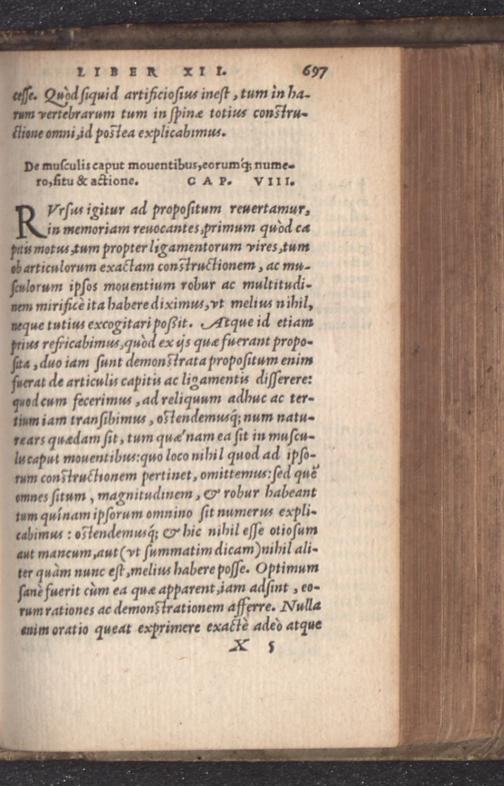 LIBER XII. 697
cesse. Quòd siquid artificiosius inest, tum in ha-
rum vertebrarum tum in spinæ totius constru-
ctione omni, id postea explicabimus.
De musculis caput mouentibus, eorumq́; nume-
ro, situ & actione. CAP. VIII.
RVrsus igitur ad propositum reuertamur,
in memoriam reuocantes, primum quòd ca
pitis motus, tum propter ligamentorum vires, tum
ob articulorum exactam constructionem, ac mu-
sculorum ipsos mouentium robur ac multitudi-
nem mirificè ita habere diximus, vt melius nihil,
neque tutius excogitari poßit. Atque id etiam
prius refricabimus, quòd ex ijs quæ fuerant propo-
sita, duo iam sunt demonstrata propositum enim
fuerat de articulis capitis ac ligamentis disserere:
quod cum fecerimus, ad reliquum adhuc ac ter-
tium iam transibimus, ostendemusq́; num natu-
re ars quædam sit, tum quæ nam ea sit in muscu-
lis caput mouentibus: quo loco nihil quod ad ipso-
rum constructionem pertinet, omittemus: sed quē
omnes situm, magnitudinem, & robur habeant
tum quínam ipsorum omnino sit numerus expli-
cabimus: ostendemusq́; & hic nihil esse otiosum
aut mancum, aut (vt summatim dicam) nihil ali-
ter quàm nunc est, melius habere posse. Optimum
sanè fuerit cùm ea quæ apparent, iam adsint, eo-
rum rationes ac demonstrationem afferre. Nulla
enim oratio queat exprimere exactè adeò atque
X 5